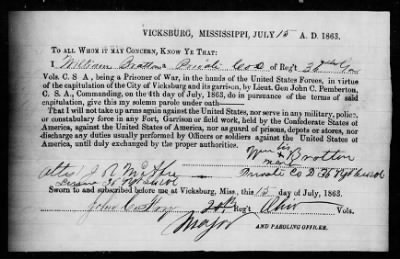 VICKSBURG, MISSISSIPPI, JULY 15 A. D. 1863.
TO ALL WHOM IT MAY CONCERN, KNOW YE THAT:
I William Bratton Private Co D of Reg't 36
Vols. C. S. A., being a Prisoner of War, in the hands of the United States Forces, in virtue
of the capitulation of the City of Vicksburg and its garrison, by Lieut. Gen John C. Pemberton,
C. S. A., Commanding, on the 4th day of July, 1863, do in pursuance of the terms of said
capitulation, give this my solemn parole under oath
That I will not take up arms again against the United States, nor serve in any military, police,
or constabulary force in any Fort, Garrison or field work, held by the Confederate States of
America, against the United States of America, nor as guard of prisons, depots or stores, nor
discharge any duties usually performed by Officers or soldiers against the United States of
America, until duly exchanged by the proper authorities.
his
Wm x Bratton
mark
Private Co D 36
Sworn to and subscribed before me at Vicksburg, Miss., this 15 day of July, 1863.
John C. Fry 20th Reg't Ohio Vols.
Major AND PAROLING OFFICER.